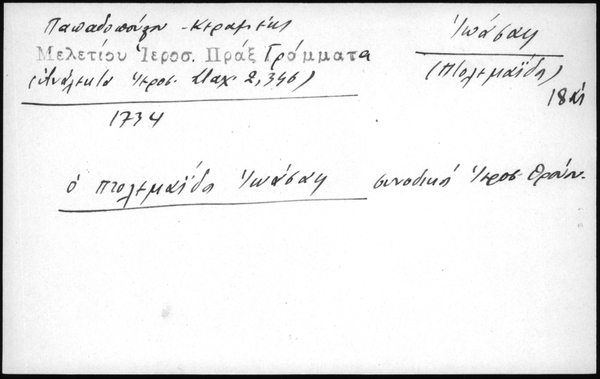 Παπαδοπούλου - Κεραμέως
Μελετίου Ἱεροσ. Πράξ Γράμματα
(Ἀνάλεκτα Ἱεροσ. Σταχ. 2,396)
1734
Ἰωάσαφ
(Πτολεμαΐδος)
18 αἰ
ὁ Πτολεμαΐδος Ἰωάσαφ συνοδικός Ἱεροσ. Θρόνου.